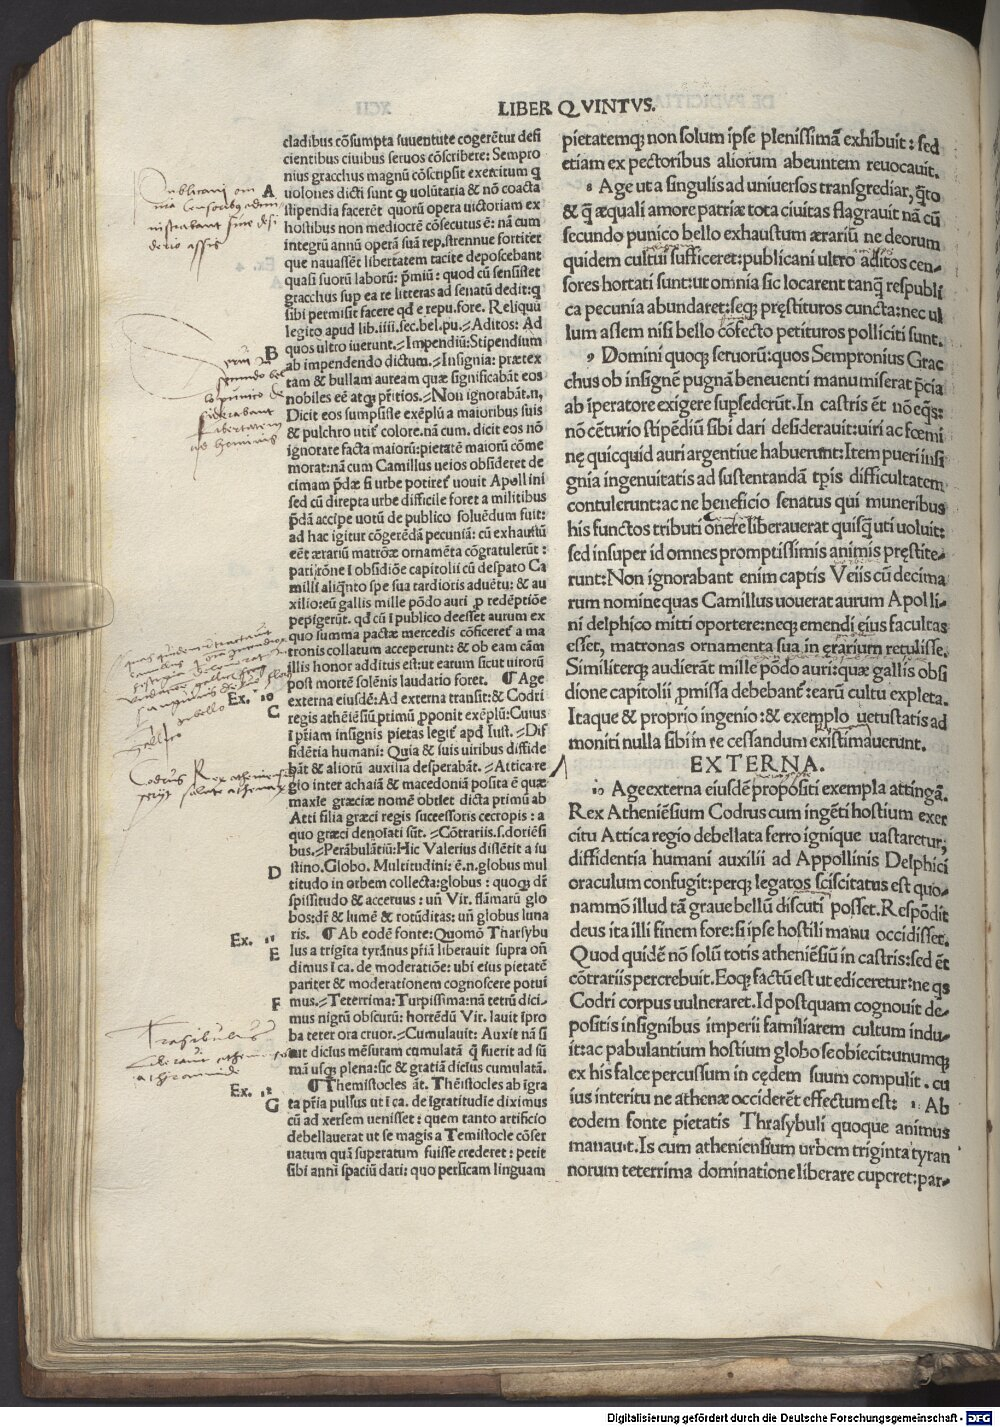 LIBER QVINTVS.
cladibus cõsumpta iuuentute cogerẽtur defi
cientibus ciuibus seruos cõscribere: Sempro
nius gracchus magnũ cõscripsit exercitum q
uolones dicti sunt ꝙ uolũtaria & nõ coacta
stipendia facerẽt quorũ opera uictoriam ex
hostibus non mediocrẽ cõsecutus ẽ: nã cum
integrũ annũ operã suã rep. strennue fortiter
que nauassẽt libertatem tacite deposcebant
quasi suorũ laborũ: p̃miũ: quod cũ sensisset
gracchus sup ea re litteras ad senatũ dedit: q
sibi permisit facere qd e repu. fore. Reliquũ
legito apud lib. iiii. sec. bel. pu. = Aditos: Ad
quos ultro iuerunt. = Impendiũ: Stipendium
ab impendendo dictum. = Insignia: prætex
tam & bullam auream quæ significabãt eos
nobiles eẽ atqꝫ pr̃itios. = Non ignorabãt. n,
Dicit eos sumpsisse exẽplũ a maioribus suis
& pulchro utit̃ colore. nã cum. dicit eos nõ
ignorate facta maiorũ: pietatẽ maiorũ cõme
morat: nã cum Camillus ueios obsideret de
cimam p̃dæ si urbe potiret̃ uouit Apollini
sed cũ direpta urbe difficile foret a militibus
p̃dã accipe uotũ de publico soluẽdum fuit:
ad hac igitur cõgerẽdã pecuniã: cũ exhaustũ
eẽt ærariũ matrõæ ornamẽta cõgratulerũt:
pati rõne ĩ obsidiõe capitolii cũ despato Ca
milli aliqñto spe sua tardioris aduẽtu: & au
xilio: eũ gallis mille põdo auri ꝓ redẽptiõe
pepigerũt. qd cũ ĩ publico deesset aurum ex
quo summa pactæ mercedis cõficeret̃ a ma
tronis collatum acceperunt: & ob eam cãm
illis honor additus est: ut earum sicut uirorũ
post mortẽ solẽnis laudatio foret. ¶ Age
externa eiusdẽ: Ad externa transit: & Codri
regis athẽiẽsiũ primũ ꝓponit exẽplũ: Cuius
ĩ pr̃iam insignis pietas legit̃ apd Iust. = Dif
fidẽtia humani: Quia & suis uiribus diffide
bãt & aliorũ auxilia desperabãt. = Attica re
gio inter achaiã & macedoniã posita ẽ quæ
maxĩe græciæ nomẽ obtĩet dicta primũ ab
Atti filia græci regis successoris cecropis: a
quo græci denoĩati sũt. = Cõtrariis. s. doriẽsi
bus. = Perãbulãtiũ: Hic Valerius dissẽtit a iu
stino. Globo. Multitudini: ẽ. n. globus mul
titudo in orbem collecta: globus: quoqꝫ dr̃
spissitudo & aceruus: uñ Vir. flãmarũ glo
bos: dr̃ & lumẽ & rotũditas: uñ globus luna
ris. ¶ Ab eodẽ fonte: Quomõ Tharsybu
lus a trigita tyrãnus pr̃iã liberauit supra oñ
dimus ĩ ca. de moderatiõe: ubi eius pietatẽ
pariter & moderationem cognoscere potui
mus. = Teterrima: Turpissima: nã tetrũ dici
mus nigrũ obscurũ: horrẽdũ Vir. lauit ĩpro
ba teter ora cruor. = Cumulauit: Auxit nã si
cut dicius mẽsuram cumulatã q̃ fuerit ad sũ
mã usqꝫ plena: sic & gratiã dicius cumulatã.
¶ Themistocles ãt. Thẽistocles ab ĩgra
ta pr̃ia pulsus ut ĩ ca. de ĩgratitudĩe diximus
cũ ad xersem uenisset: quem tanto artificio
debellauerat ut se magis a Temistocle cõser
uatum quã superatum fuisse crederet: petit
sibi anni spaciũ dari: quo persicam linguam
A
B
Ex. 10
C
D
Ex. 11
E
F
Ex. 12
G
Codrus Rex atheniensiũ
Trasibulus
liberauit athenas
a thyrannide
pietatemqꝫ non solum ipse plenissimã exhibuit: sed
etiam ex pectoribus aliorum abeuntem reuocauit.
8 Age ut a singulis ad uniuersos transgrediar, q̃to
& q̃ æquali amore patriæ tota ciuitas flagrauit nã cũ
secundo punico bello exhaustum ærariũ ne deorum
quidem cultui sufficeret: publicani ultro aditos cen=
sores hortati sunt: ut omnia sic locarent tanq̃ respubli
ca pecunia abundaret: seqꝫ pręstituros cuncta: nec ul
lum assem nisi bello cõfecto petituros polliciti sunt.
9 Domini quoqꝫ seruorũ: quos Sempronius Grac
chus ob insignẽ pugnã beneuenti manu miserat p̃cia
ab ĩperatore exigere sup̃sederũt. In castris ẽt nõ eq̃s:
nõ cẽturio stipẽdiũ sibi dari desiderauit: uiri ac fœmi
nę quicquid auri argentiue habuerunt: Item pueri insi
gnia ingenuitatis ad sustentandã tp̃is difficultatem
contulerunt: ac ne beneficio senatus qui muneribus
his functos tributi onere liberauerat quisq̃ uti uoluit:
sed insuper id omnes promptissimis animis pręstite=
runt: Non ignorabant enim captis Veiis cũ decima
rum nomine quas Camillus uouerat aurum Apolli=
ni delphico mitti oportere: neqꝫ emendi eius facultas
esset, matronas ornamenta sua in ęrarium retulisse.
Similiterqꝫ audierãt mille põdo auri: quæ gallis obsi
dione capitolii ꝓmissa debebant̃: earũ cultu expleta.
Itaque & proprio ingenio: & exemplo uetustatis ad
moniti nulla sibi in re cessandum existimauerunt.
EXTERNA.
10 Age externa eiusdẽ propositi exempla attingã.
Rex Atheniẽsium Codrus cum ingẽti hostium exer
citu Attica regio debellata ferro ignique uastaretur;
diffidentia humani auxilii ad Appollinis Delphici
oraculum confugit: perqꝫ legatos sciscitatus est quo=
nammõ illud tã graue bellũ discuti posset. Respõdit
deus ita illi finem fore: si ipse hostili manu occidisset.
Quod quidẽ nõ solũ totis atheniẽsiũ in castris: sed ẽt
cõtrariis percrebuit. Eoqꝫ factũ est ut ediceretur: ne qs
Codri corpus uulneraret. Id postquam cognouit de=
positis insignibus imperii familiarem cultum indu=
it: ac pabulantium hostium globo se obiecit: unumqꝫ
ex his falce percussum in cędem suum compulit. cu
ius interitu ne athenæ occiderẽt effectum est: 11 Ab
eodem fonte pietatis Thrasybuli quoque animus
manauit. Is cum atheniensium urbem triginta tyran
norum teterrima dominatione liberare cuperet: par=
Digitalisierung gefördert durch die Deutsche Forschungsgemeinschaft - DFG